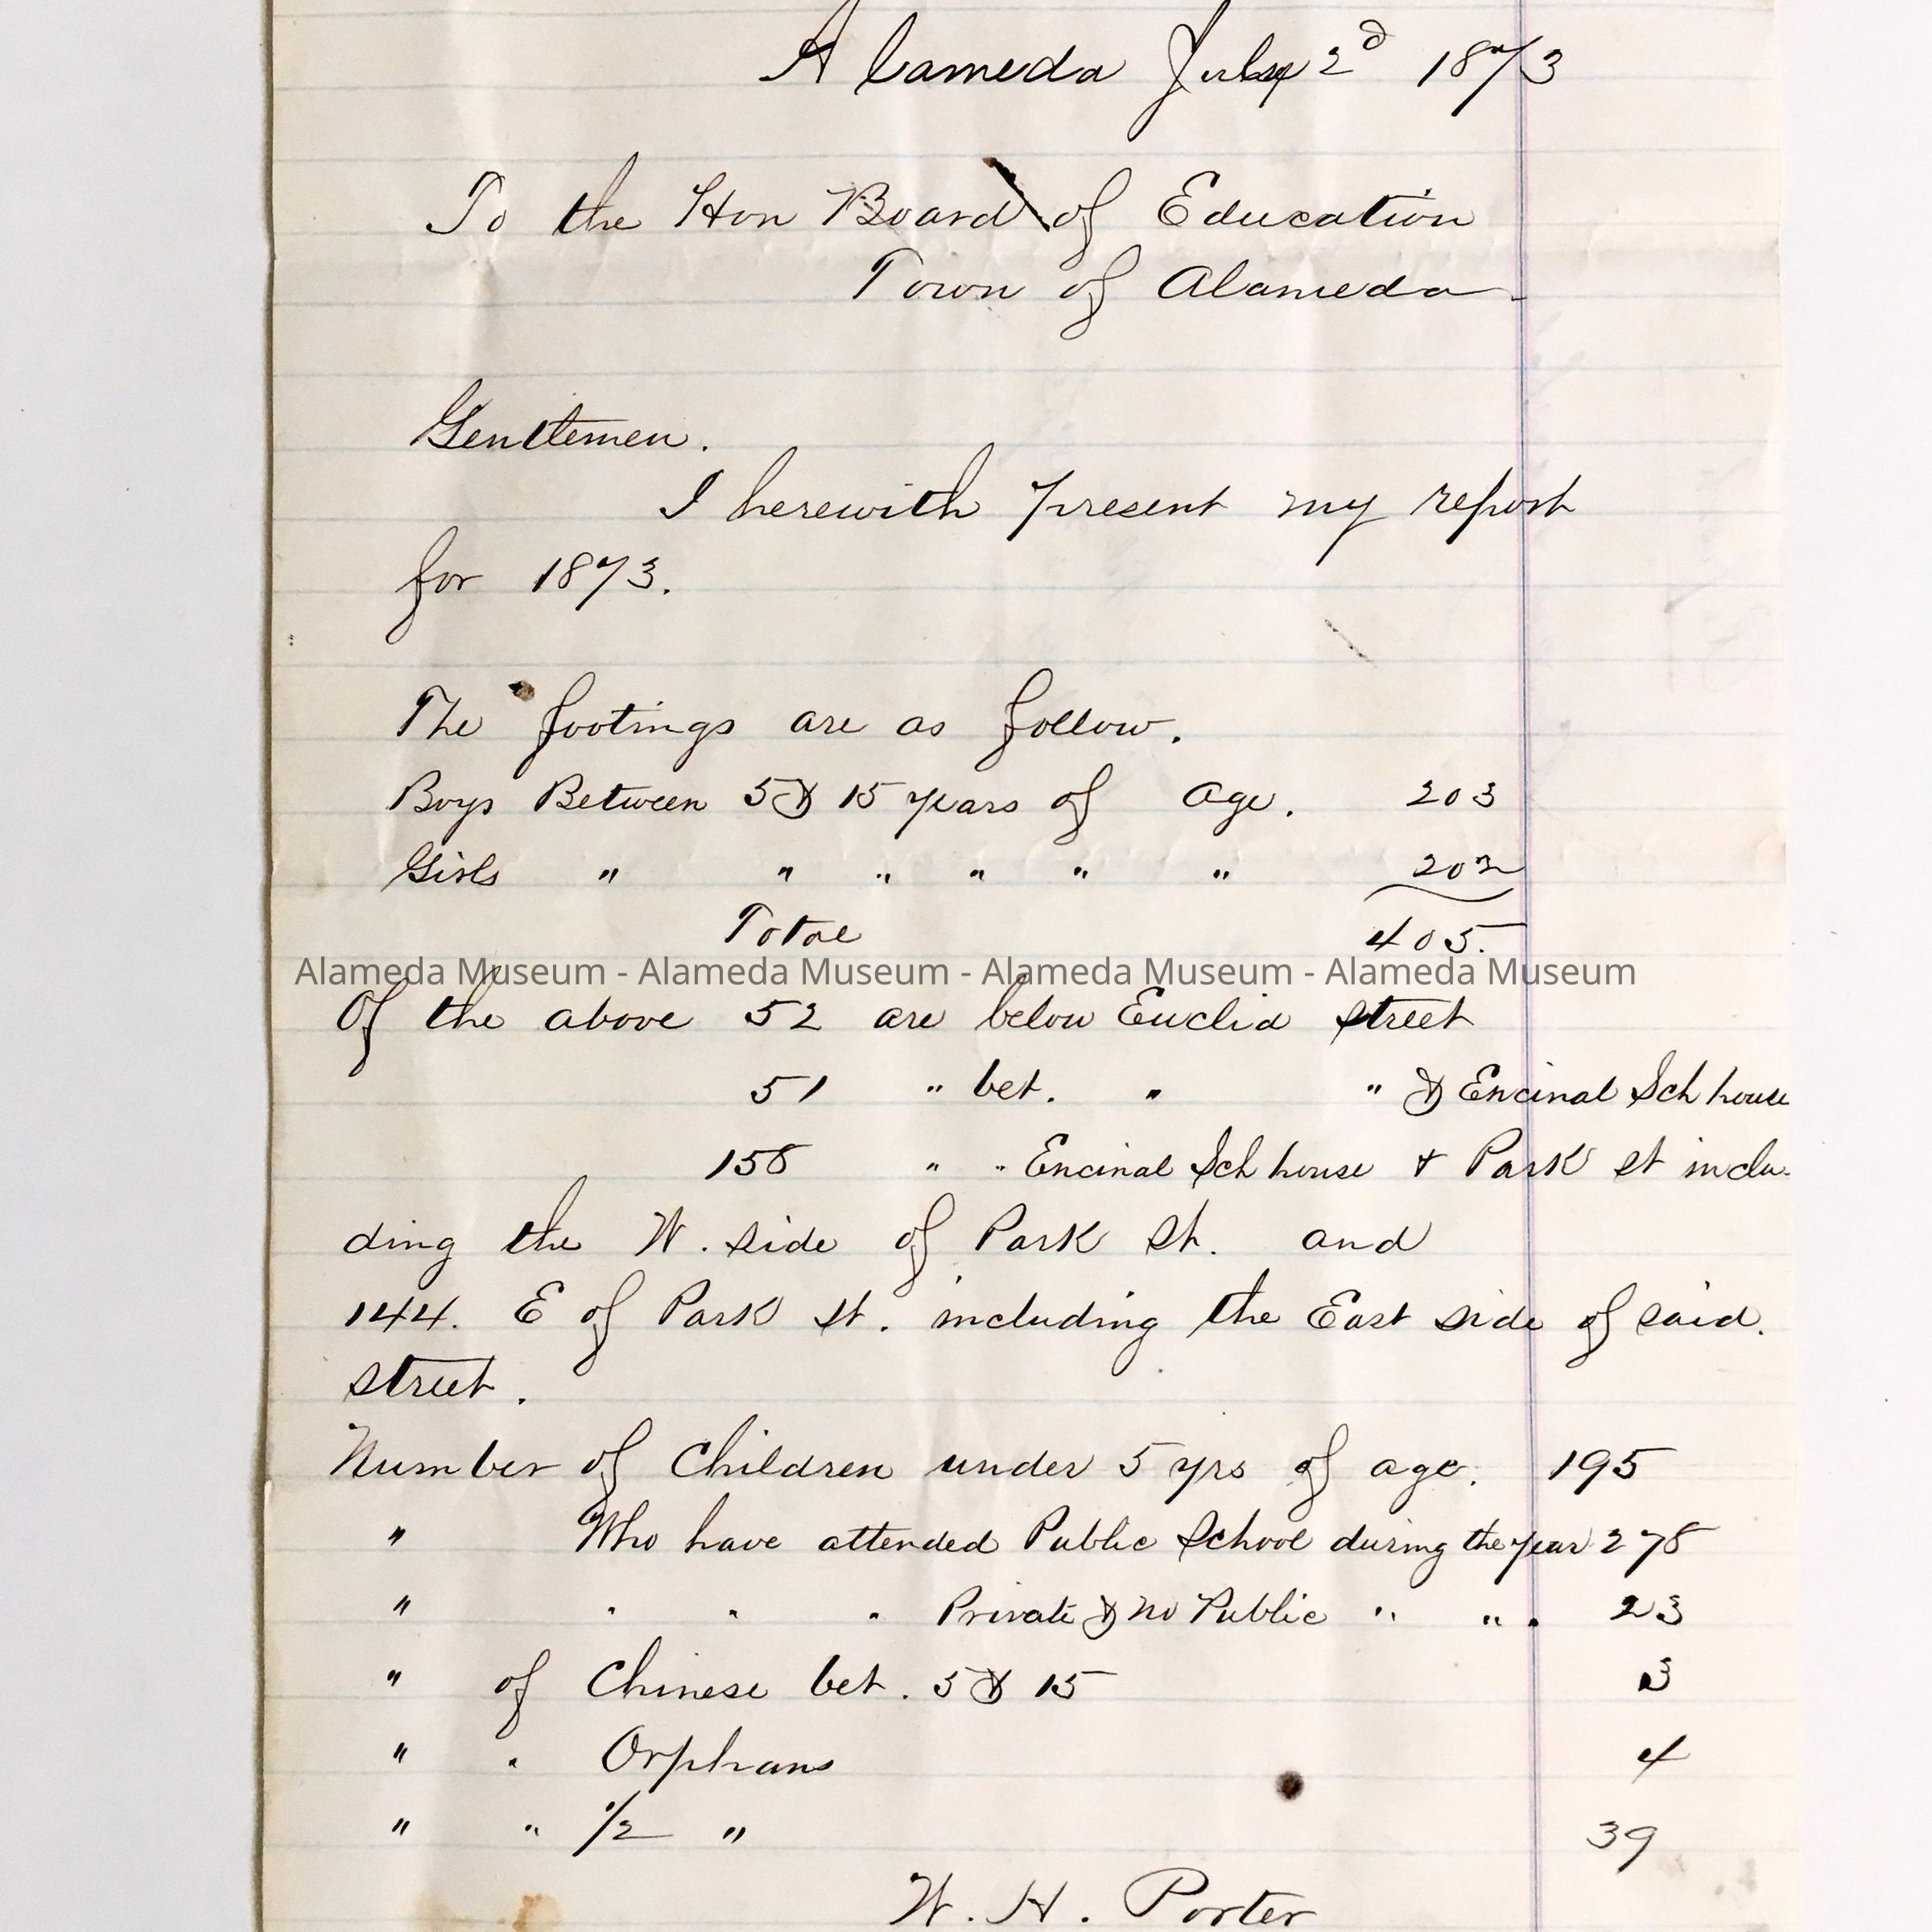 Alameda July 2d 1873
To the Hon Board of Education
Town of Alameda
Gentlemen.
I herewith present my report
for 1873.
The footings are as follow.
Boys Between 5 & 15 years of Age. 203
Girls " " " " " " 202
Total 405.
Alameda Museum - Alameda Museum - Alameda Museum - Alameda Museum
Of the above 52 are below Euclid street
51 " bet. " " & Encinal Sch house
158 " " Encinal Sch house & Park st inclu-
ding the W. side of Park St. and
144. E of Park st. including the East side of said.
street.
Number of Children under 5 yrs of age. 195
" Who have attended Public School during the year 278
" " " " Private & no Public " " " 23
" of Chinese bet. 5 & 15 3
" " Orphans 4
" " 1/2 " 39
W. H. Porter